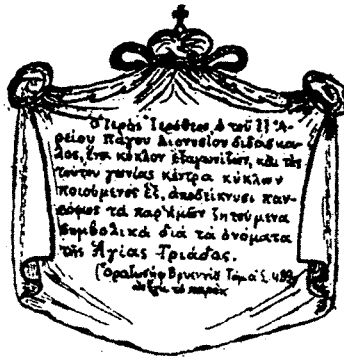 Ὁ Ἱερὸς Ἱερόθεος, ὁ τοῦ ἐξ Ἀ-
ρείου Πάγου Διονυσίου διδάσκα-
λος, ἕνα κύκλον ἑξαγωνίζων, καὶ τὰς
τούτου γωνίας κέντρα κύκλων
ποιούμενος ἕξ, ἀποδείκνυσι παν-
σόφως τὰ παρ' ἡμῶν ζητούμενα
συμβολικὰ διὰ τὰ ὀνόματα
τῆς Ἁγίας Τριάδος.
Βρυεννίῳ Τόμῳ